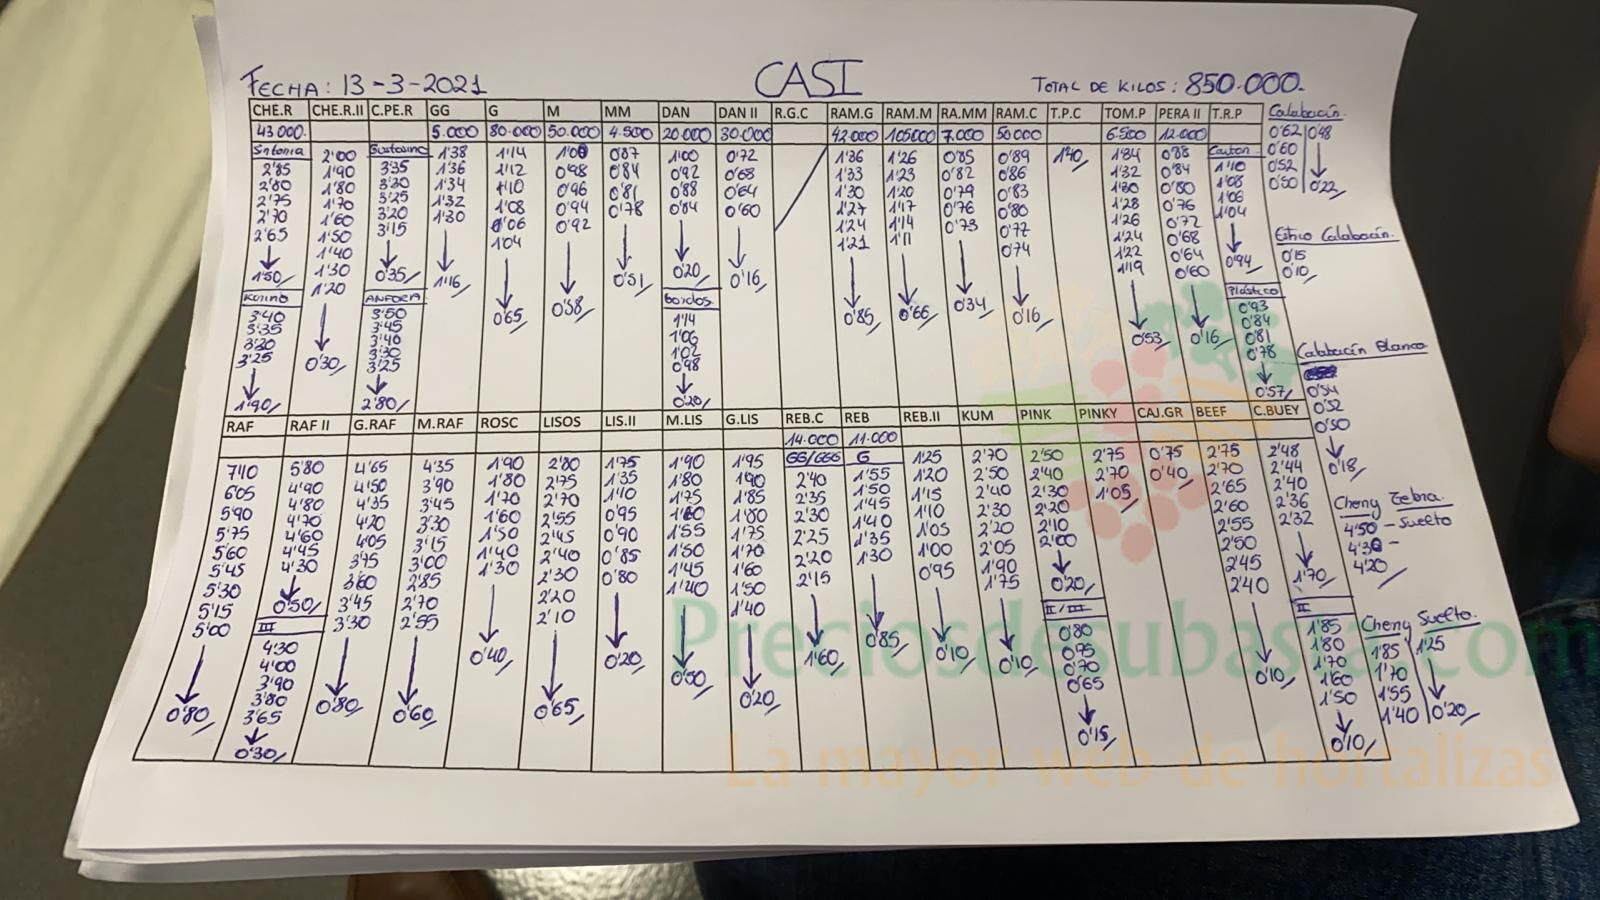 FECHA: 13-3-2021 CASI TOTAL DE KILOS: 850.000.
CHE.R CHE.R.II C.PE.R GG G M MM DAN DAN II R.G.C RAM.G RAM.M RA.MM RAM.C T.P.C TOM.P PERA II T.R.P Calabacín
43.000. 5.000 80.000 50.000 4.500 20.000 30.000 42.000 105.000 7.000 50.000 6.500 12.000
2'00 1'38 1'14 1'00 0'87 1'00 0'72 1'36 1'26 0'85 0'89 1'40 1'34 0'88 Carton 0'62 0'48
2'85 1'90 3'35 1'36 1'12 0'98 0'84 0'92 0'68 1'33 1'23 0'82 0'86 1'32 0'84 1'10 0'60
2'80 1'80 3'30 1'34 1'10 0'96 0'81 0'88 0'64 1'30 1'20 0'79 0'83 1'30 0'80 1'08 0'52
2'75 1'70 3'25 1'32 1'08 0'94 0'78 0'84 0'60 1'27 1'17 0'76 0'80 1'28 0'76 1'06 0'50 0'22
2'70 1'60 3'20 1'30 1'06 0'92 1'24 1'14 0'73 0'77 1'26 0'72 1'04
2'65 1'50 3'15 1'04 1'21 1'11 0'74 1'24 0'68
1'40 1'22 0'64 Calabacín.
1'50 1'30 0'35 1'16 0'51 0'20 0'16 1'19 0'60 0'94 0'15
1'20 0'10
ANFORA Bordos Plástico
3'40 3'50 0'65 0'58 1'14 0'85 0'66 0'34 0'16 0'93
3'35 3'45 1'06 0'53 0'16 0'84
3'20 3'40 1'02 0'81
3'25 0'30 3'30 0'98 0'78 Calabacín Blanco
3'25
1'90 2'80 0'20 0'57 0'54
0'52
0'50
0'18
RAF RAF II G.RAF M.RAF ROSC LISOS LIS.II M.LIS G.LIS REB.C REB REB.II KUM PINK PINKY CAJ.GR BEEF C.BUEY
14.000 11.000
GG/GGG G
7'10 5'80 4'65 4'35 1'90 2'80 1'75 1'90 1'95 2'40 1'55 1'25 2'70 2'50 2'75 0'75 2'75 2'48
6'05 4'90 4'50 3'90 1'80 2'75 1'35 1'80 1'90 2'35 1'50 1'20 2'50 2'40 2'70 0'40 2'70 2'44
5'90 4'80 4'35 3'45 1'70 2'70 1'10 1'75 1'85 2'30 1'45 1'15 2'40 2'30 1'05 2'65 2'40
5'75 4'70 4'20 3'30 1'60 2'55 0'95 1'60 1'80 2'25 1'40 1'10 2'30 2'20 2'60 2'36
5'60 4'60 4'05 3'15 1'50 2'45 0'90 1'55 1'75 2'20 1'35 1'05 2'20 2'10 2'55 2'32
5'45 4'45 3'75 3'00 1'40 2'40 0'85 1'50 1'70 2'15 1'30 1'00 2'05 2'00 2'50
5'30 4'30 3'60 2'85 1'30 2'30 0'80 1'45 1'60 0'95 1'90 2'45
5'15 0'50 3'45 2'70 2'20 1'40 1'50 1'75 0'20 2'40 1'70
5'00 III 3'30 2'55 2'10 1'40 II/III II
4'30 0'80 1'85
4'00 0'75 1'80
3'90 0'70 1'70
3'80 0'65 1'60
3'65 1'50
0'80 0'30 0'80 0'60 0'40 0'65 0'20 0'50 0'20 1'60 0'85 0'10 0'10 0'15 0'10 0'10
Cheny Zebra.
4'50 - Suelto
4'30 -
4'20
Cheny Suelto.
1'85 1'25
1'70
1'55
1'40 0'20
Preciosdesubasta.com
La mayor web de hortalizas